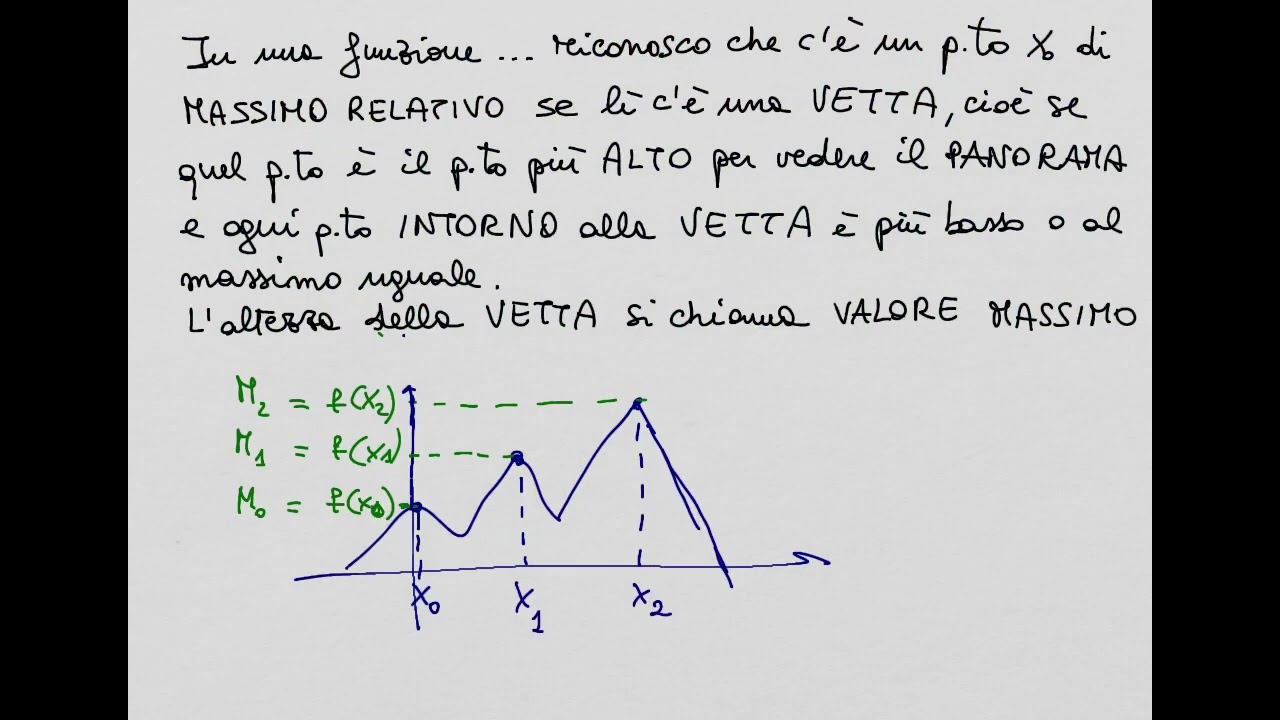 In una funzione ... riconosco che c'è un p.to x₀ di
MASSIMO RELATIVO se lì c'è una VETTA, cioè se
quel p.to è il p.to più ALTO per vedere il PANORAMA
e ogni p.to INTORNO alla VETTA è più basso o al
massimo uguale.
L'altezza della VETTA si chiama VALORE MASSIMO
M₂ = f(x₂)
M₁ = f(x₁)
M₀ = f(x₀)
x₀ x₁ x₂